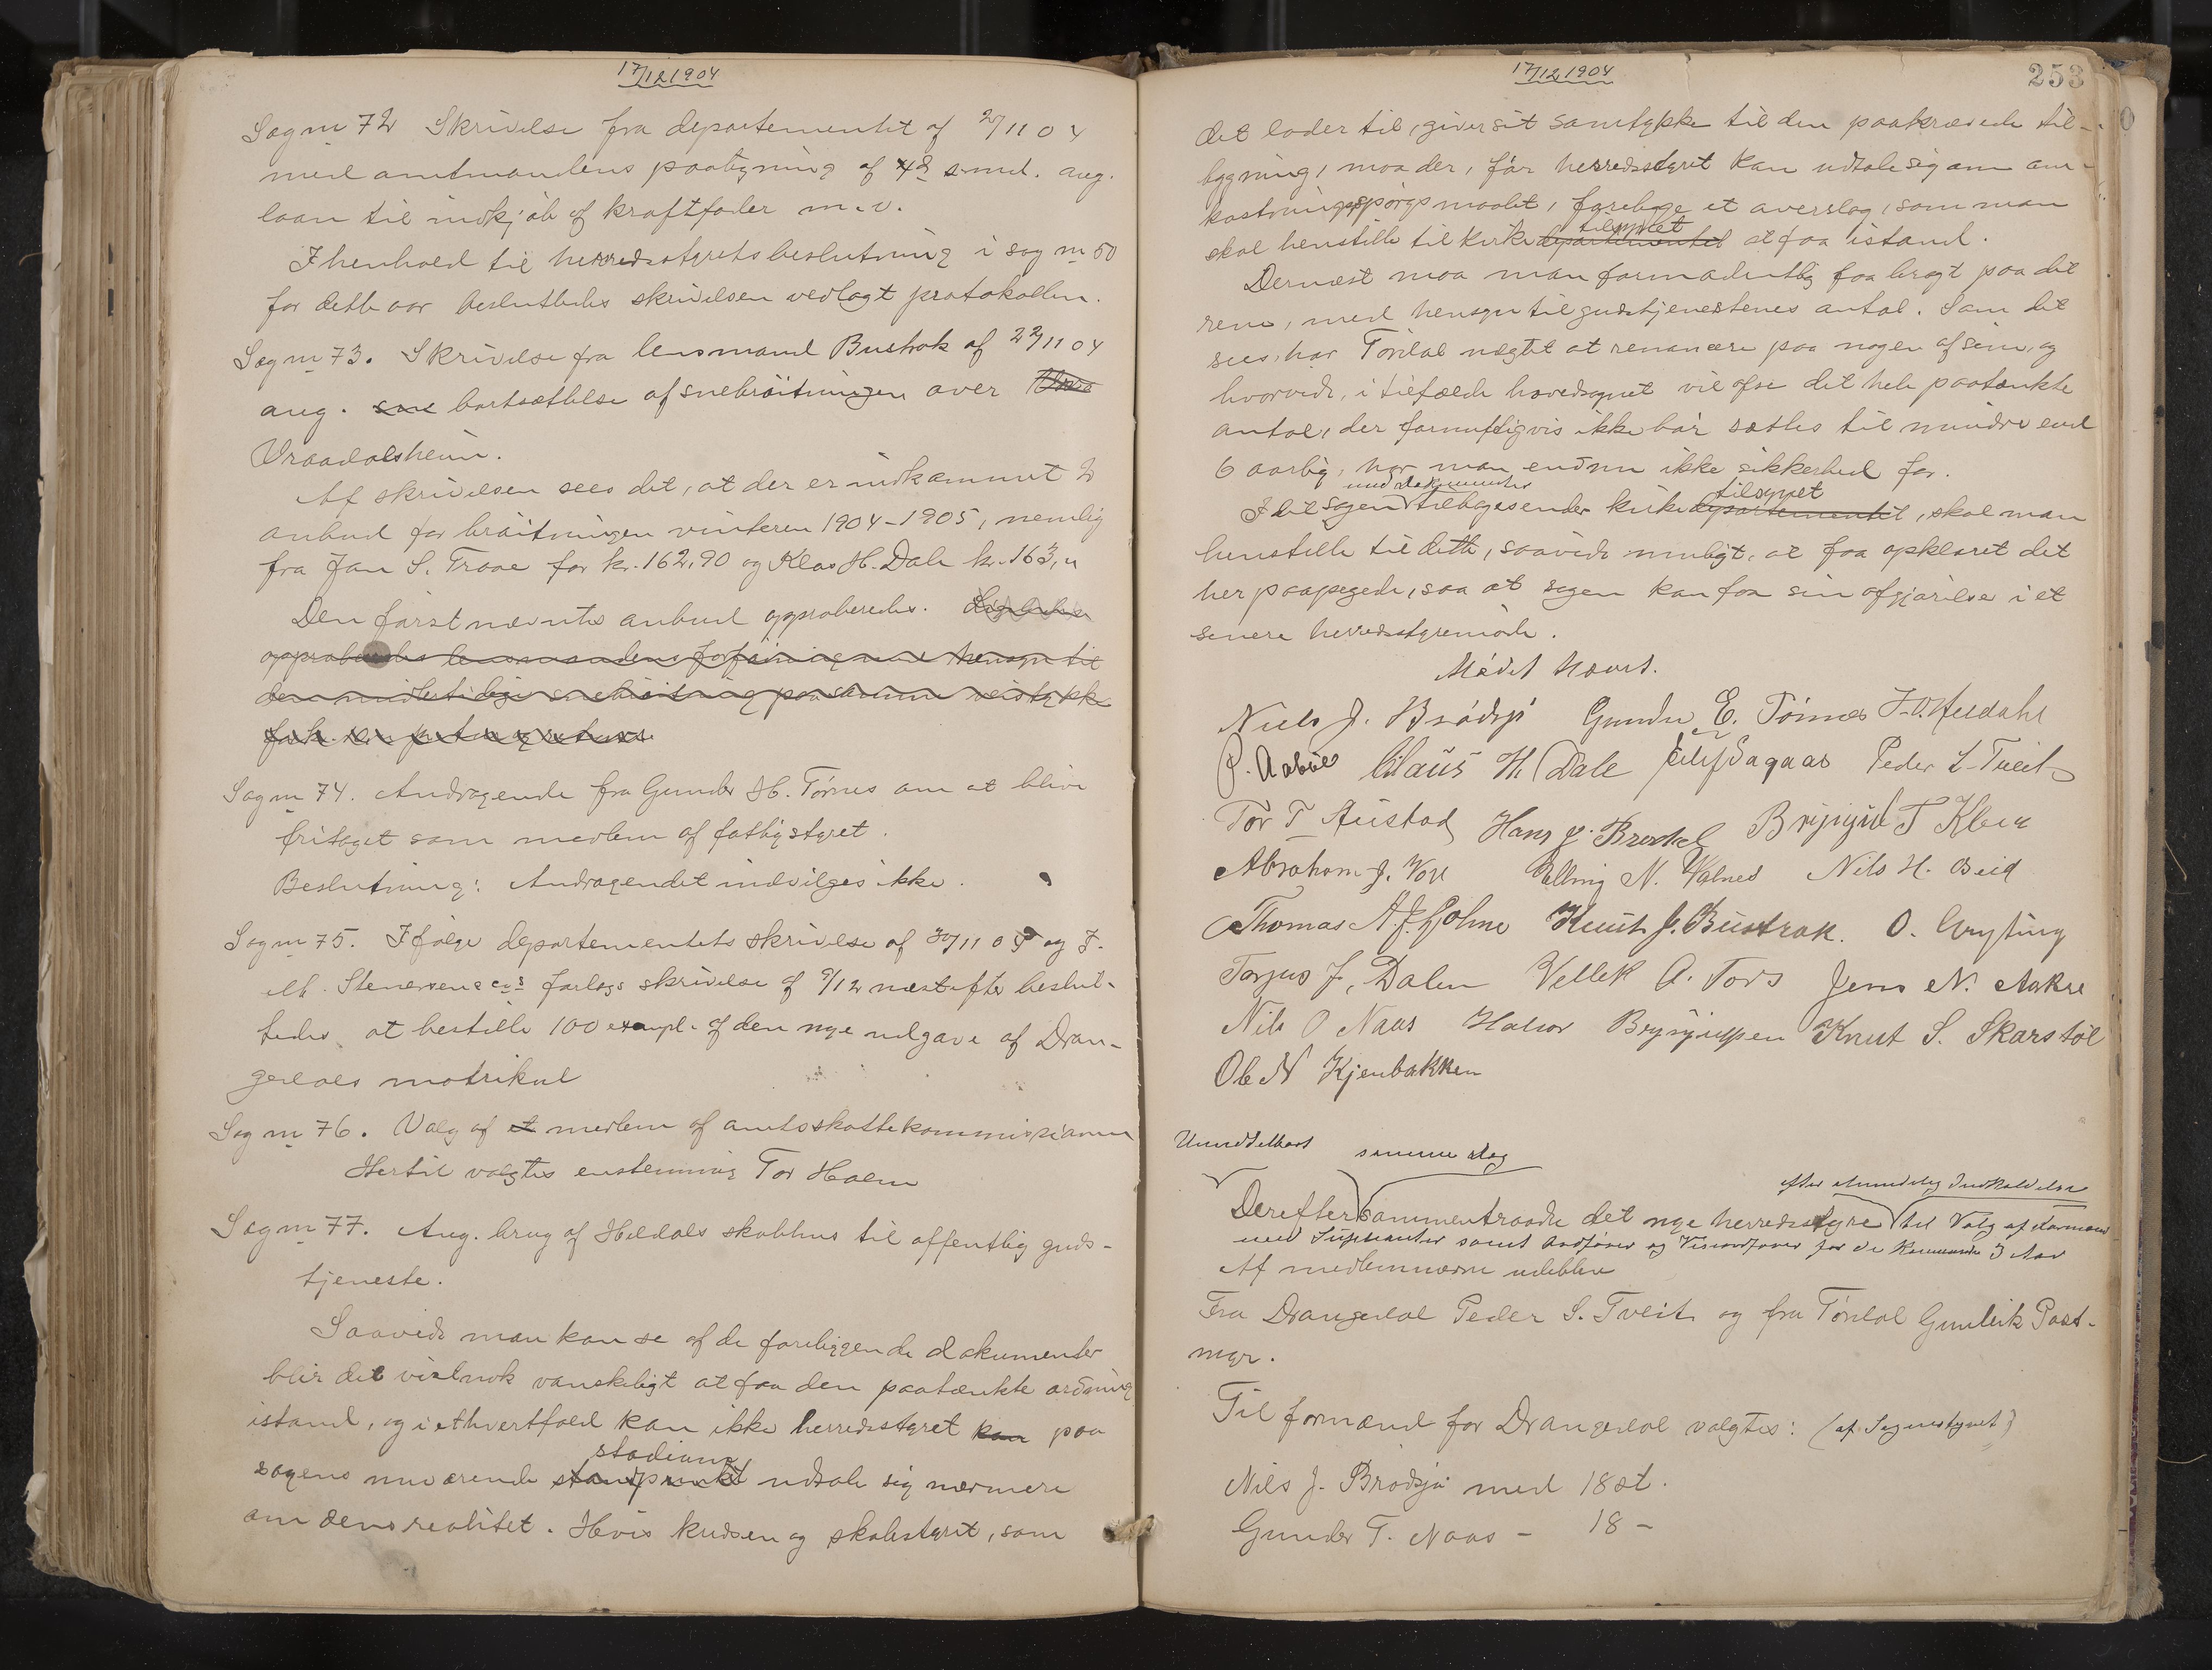 17/12 1904
Sag nr 72 Skrivelse fra departementet af 2/11 04
med amtmandens paategning af 4d s. md. ang.
laan til indkjøb af kraftfoder m.v.
I henhold til herredsstyrets beslutning i sag nr 50
for dette aar besluttedes skrivelsen vedlagt protokollen.
Sag nr 73. Skrivelse fra lensmand Bustrak af 22/11 04
ang. bortsættelse af snebrøitningen over
Vraadalsheim.
Af skrivelsen sees det, at der er indkommet 2
anbud for brøitningen vinteren 1904-1905, nemlig
fra Jan S. Traae for kr. 162,90 og Klas H. Dale kr. 163,"
Den førstnævntes anbud approberedes.
approberedes lensmandens forføining med hensyn til
den midlertidige snebrøitning paa samme veistykke
Sag nr 74. Andragende fra Gunder H. Tørnes om at blive
fritaget som medlem af fattigstyret.
Beslutning: Andragendet indvilges ikke.
Sag nr 75. Ifølge departementets skrivelse af 30/11 04 og J.
M. Stenersen & co's forlags skrivelse af 9/12 næstefter beslut-
tedes at bestille 100 exempl. af den nye udgave af Dran-
gedals matrikul
Sag nr 76. Valg af et medlem af amtsskattekommissionen
Hertil valgtes enstemmig Tor Holm
Sag nr 77. Ang. brug af Heldals skolhus til offentlig guds-
tjeneste.
Saavidt man kan se af de foreliggende dokumenter
blir det vistnok vanskeligt at faa den paatænkte ordning
istand, og i ethvertfald kan ikke herredsstyret kan paa
stadium
sagens nuværende standpunkt udtale sig nærmere
om dens realitet. Hvis kredsen og skolestyret, som
17/12 1904
253
det lader til, giver sit samtykke til den paakrævede til-
bygning, maa der, før herredsstyret kan udtale sig om om-
kostningsspørgsmaalet, forelige et overslag, som man
tilsynet
skal henstille til kirkedepartementet at faa istand.
Dernæst maa man formodentlig faa bragt paa det
rene, med hensyn til gudstjenestenes antal. Som det
sees, har Tørdal nægtet at renoncere paa nogen af sine, og
hvorvidt, i tilfælde hovedsognet vil afse det hele paatænkte
antal, der fornuftigvis ikke bør sættes til mindre end
6 aarlig, har man endnu ikke sikkerhed for.
med dokumenter tilsynet
Idet sagen tilbagesendes kirkedepartementet, skal man
henstille til dette, saavidt muligt, at faa opklaret det
her paapegede, saa at sagen kan faa sin afgjørelse i et
senere herredsstyremøde.
Mødet hævet.
Niels J. Brødsjø Gunder E. Tørnes J. O. Heldahl
P. Aabøe Claus H. Dale Eilif Dagaas Peder S. Tveit
Tor T. Austad Hans J. Brødsjø Brynjuld T Kleiv
Abraham J. Voje Elling N. Valnes Nils H. Beid
Thomas A. J. Holme Knut J. Bustrak. O. Gryting
Torjus J. Dalen Vellek A. Tors Jens N. Aakre
Nils O Naas Halvor Brynjulsen Knut S. Skarstøl
Ole N Kjenbakken
Umiddelbart samme dag
efter almindelig Indkaldelse
Derefter sammentraadte det nye herredsstyre til Valg af Formænd
med Suppleanter samt Ordfører og Viceordfører for de kommende 3 Aar
Af medlemmerne udebleve
Fra Drangedal Peder S. Tveit og fra Tørdal Gunleik Post-
myr.
Til formænd for Drangedal valgtes: (af Sognestyret)
Nils J. Brødsjø med 18 st.
Gunder T. Naas - 18 -